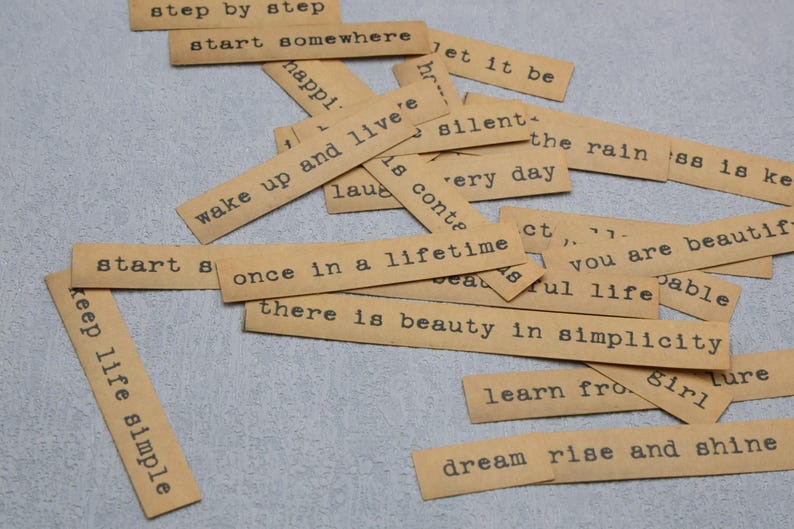 step by step
start somewhere
let it be
happi
wake up and live
silent
the rain
ess is ke
laug very day
is conta us
you are beautif
start s
once in a lifetime
ful life
pable
there is beauty in simplicity
keep life simple
learn fro ture
girl
dream
rise and shine